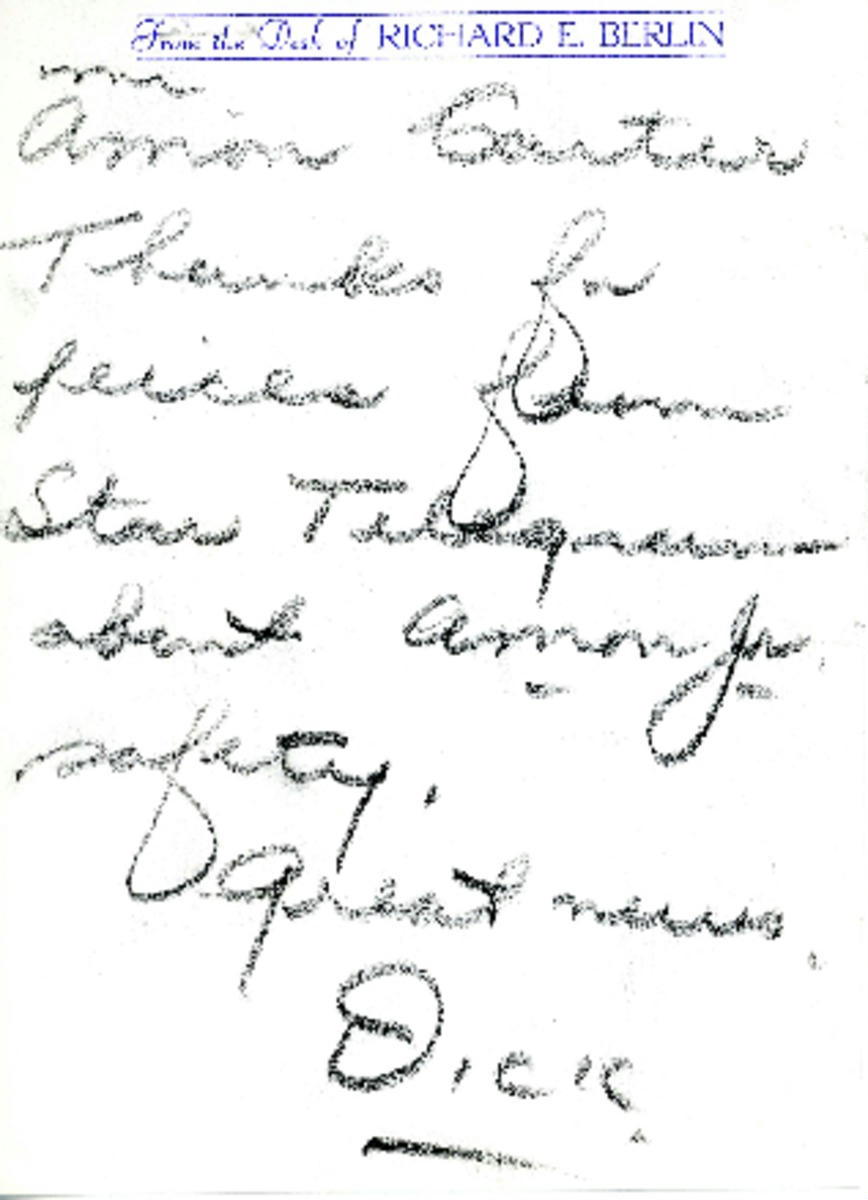 From the Desk of RICHARD E. BERLIN
Amon Carter
Thanks for
from
Star Telegram
about Amon Jr
safety.
Great news.
Dick